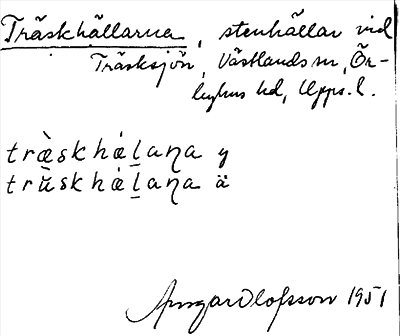 Träskhällarna, stenhällar vid
Träsksjön, Västlands sn, Ör-
byhus hd, Upps. l.
træ̀skhæ̀ḻaɳa y
trǜskhæ̀ḻaɳa ä
Olofsson 1951